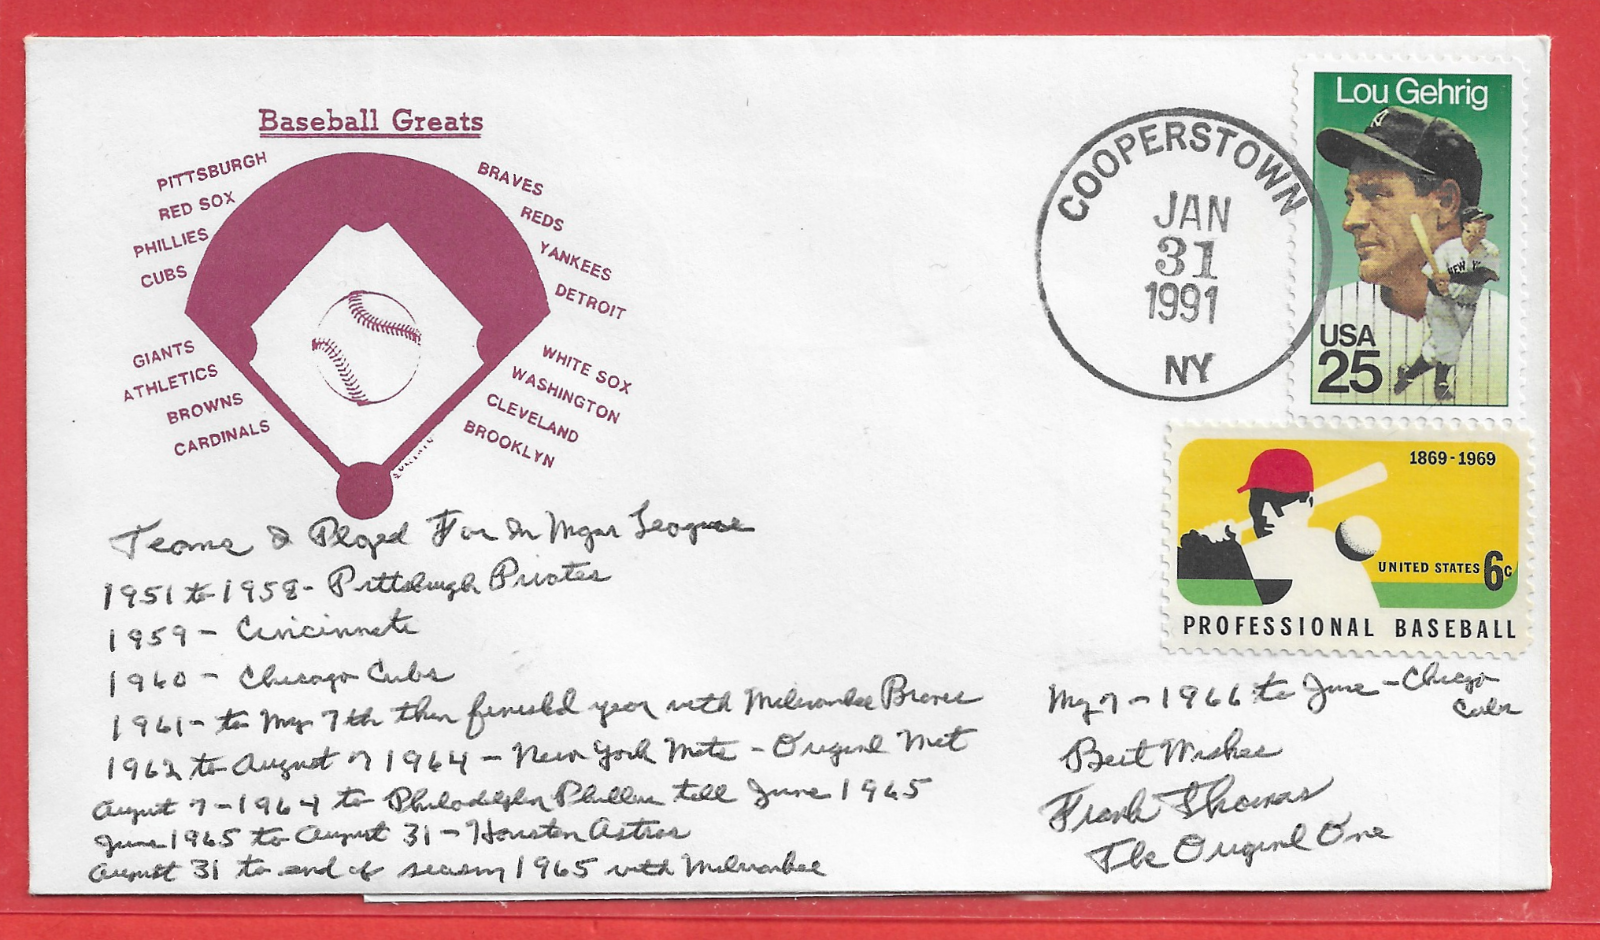 Baseball Greats
PITTSBURGH
RED SOX
PHILLIES
CUBS
GIANTS
ATHLETICS
BROWNS
CARDINALS
BRAVES
REDS
YANKEES
DETROIT
WHITE SOX
WASHINGTON
CLEVELAND
BROOKLYN
COOPERSTOWN
JAN
31
1991
NY
Lou Gehrig
NEW Y
USA
25
1869-1969
UNITED STATES 6c
PROFESSIONAL BASEBALL
Teams I Played For In Major League
1951 to 1958 - Pittsburgh Pirates
1959 - Cincinnati
1960 - Chicago Cubs
1961 - to May 7th then finished year with Milwaukee Braves
1962 to August 7 1964 - New York Mets - Original Met
August 7 - 1964 to Philadelphia Phillies till June 1965
June 1965 to August 31 - Houston Astros
August 31 to end of season 1965 with Milwaukee
May 7 - 1966 to June - Chicago
Cubs
Best Wishes
Frank Thomas
The Original One